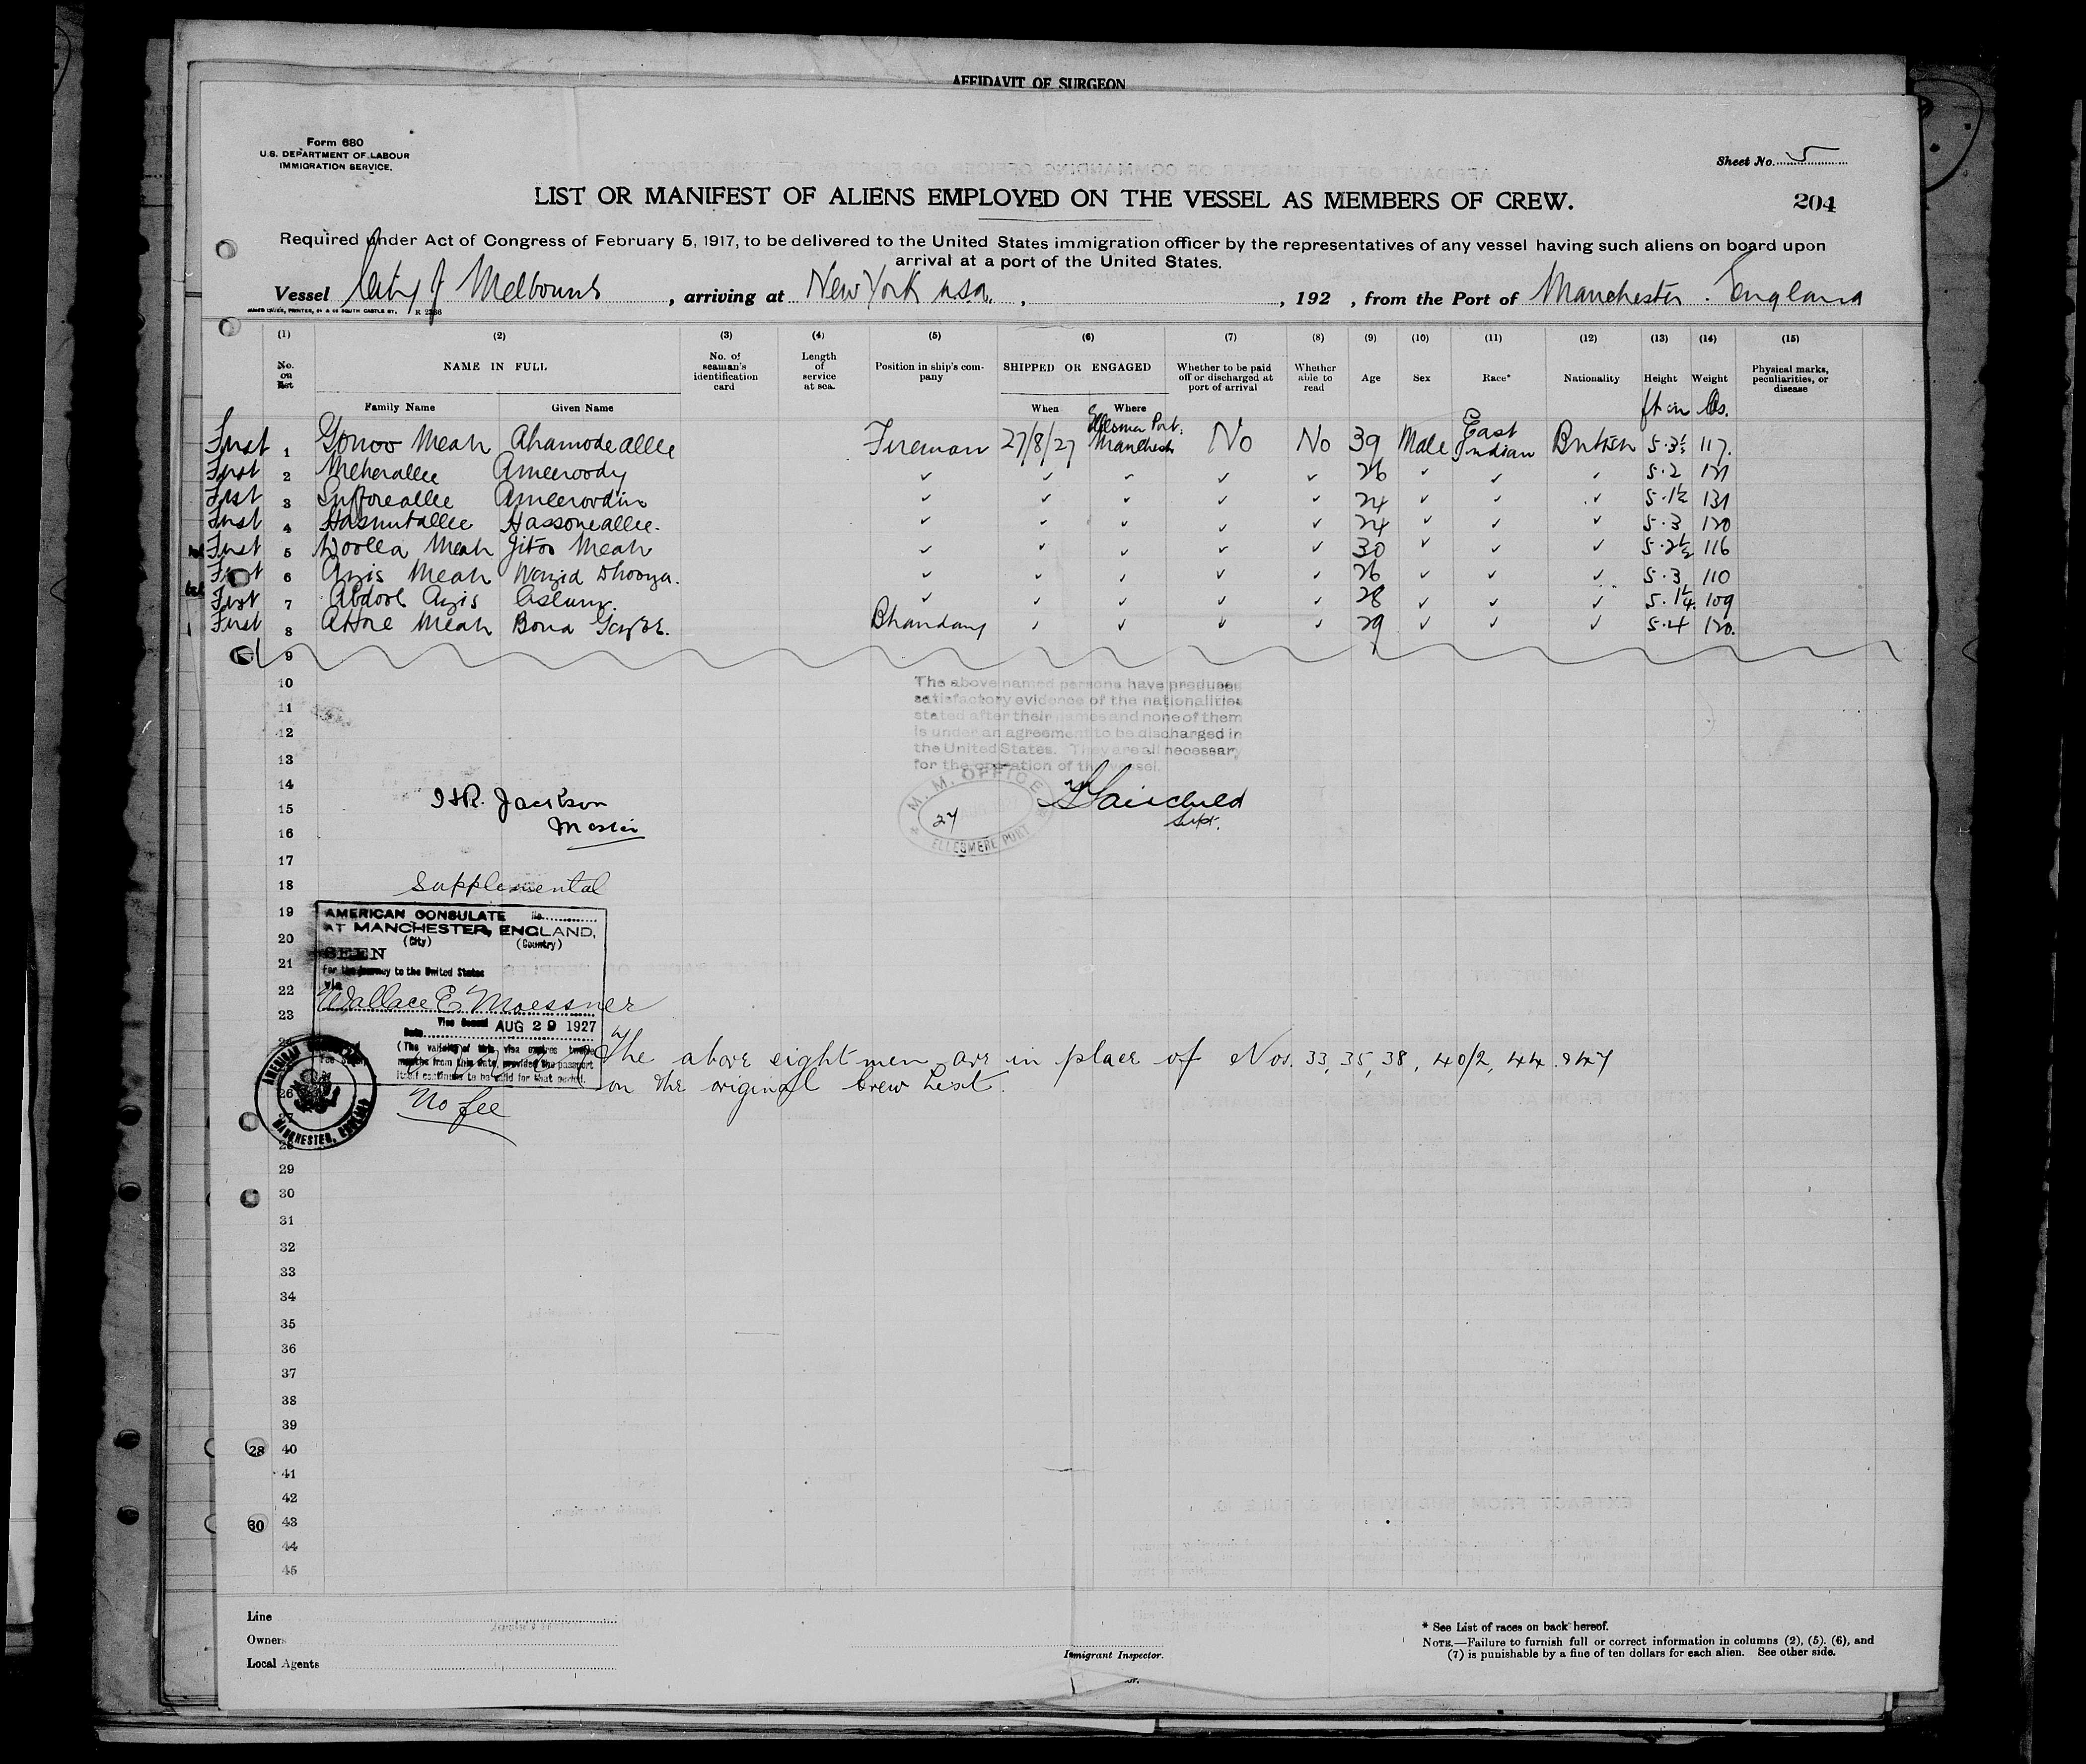 AFFIDAVIT OF SURGEON
Form 680
U.S. DEPARTMENT OF LABOUR
IMMIGRATION SERVICE.
Sheet No. 5
LIST OR MANIFEST OF ALIENS EMPLOYED ON THE VESSEL AS MEMBERS OF CREW.
204
Required under Act of Congress of February 5, 1917, to be delivered to the United States immigration officer by the representatives of any vessel having such aliens on board upon
arrival at a port of the United States.
Vessel City of Melbourne, arriving at New York USA, , 192 , from the Port of Manchester. England
(1) (2) (3) (4) (5) (6) (7) (8) (9) (10) (11) (12) (13) (14) (15)
No. on list NAME IN FULL No. of seaman's identification card Length of service at sea. Position in ship's company SHIPPED OR ENGAGED Whether to be paid off or discharged at port of arrival Whether able to read Age Sex Race* Nationality Height Weight Physical marks, peculiarities, or disease
Family Name Given Name When Where ft in lbs.
First 1 Gonoo Meah Ahamodeallee Fireman 27/8/27 Ellesmere Port: Manchester No No 39 Male East Indian British 5.3½ 117.
First 2 Meherallee Ameeroody ✓ ✓ ✓ ✓ ✓ 26 ✓ ✓ ✓ 5.2 121
First 3 Ameeroodin ✓ ✓ ✓ ✓ ✓ 24 ✓ ✓ ✓ 5.1½ 131
First 4 Hasmutallee Hassoneallee. ✓ ✓ ✓ ✓ ✓ 24 ✓ ✓ ✓ 5.3 120
First 5 Woolla Meah Jitoo Meah ✓ ✓ ✓ ✓ ✓ 30 ✓ ✓ ✓ 5.2½ 116
First 6 Azis Meah Wazid Dhooya. ✓ ✓ ✓ ✓ ✓ 26 ✓ ✓ ✓ 5.3 110
First 7 Abdool Azis Aslum. ✓ ✓ ✓ ✓ ✓ 28 ✓ ✓ ✓ 5.1¼ 109
First 8 Attore Meah Bona Bhandary ✓ ✓ ✓ ✓ 29 ✓ ✓ ✓ 5.4 120.
9
10
11
12
13
14
15
16
17
18
19
20
21
22
23
The above named persons have produced
satisfactory evidence of the nationalities
stated after their names and none of them
is under an agreement to be discharged in
the United States. They are all necessary
for the operation of the vessel.
M. M. OFFICE
27
ELLESMERE PORT
Fairchild
Supt.
H.R. Jackson
Master
Supplemental
AMERICAN CONSULATE No.
AT MANCHESTER, ENGLAND,
(City) (Country)
SEEN
for the journey to the United States
via
Wallace E. Moessner
Vice Consul
Date AUG 29 1927
(The validity of this visa expires twelve
months from this date, provided the passport
itself continues to be valid for that period.
The above eight men are in place of Nos. 33, 35, 38, 40/2, 44. & 47
on the original Crew List.
No fee
26
MANCHESTER, ENGLAND
28
29
30
31
32
33
34
35
36
37
38
39
28 40
41
42
30 43
44
45
Line
Owners
Local Agents
Immigrant Inspector.
* See List of races on back hereof.
NOTE.—Failure to furnish full or correct information in columns (2), (5), (6), and
(7) is punishable by a fine of ten dollars for each alien. See other side.